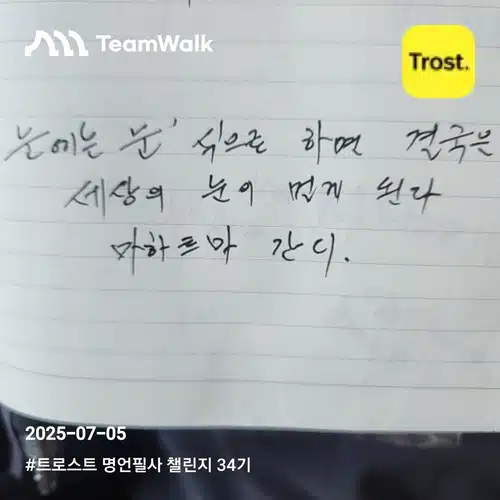 TeamWalk
Trost.
눈에는 눈' 식으로 하면 결국은
세상의 눈이 멀게 된다
마하트마 간디.
2025-07-05
#트로스트 명언필사 챌린지 34기